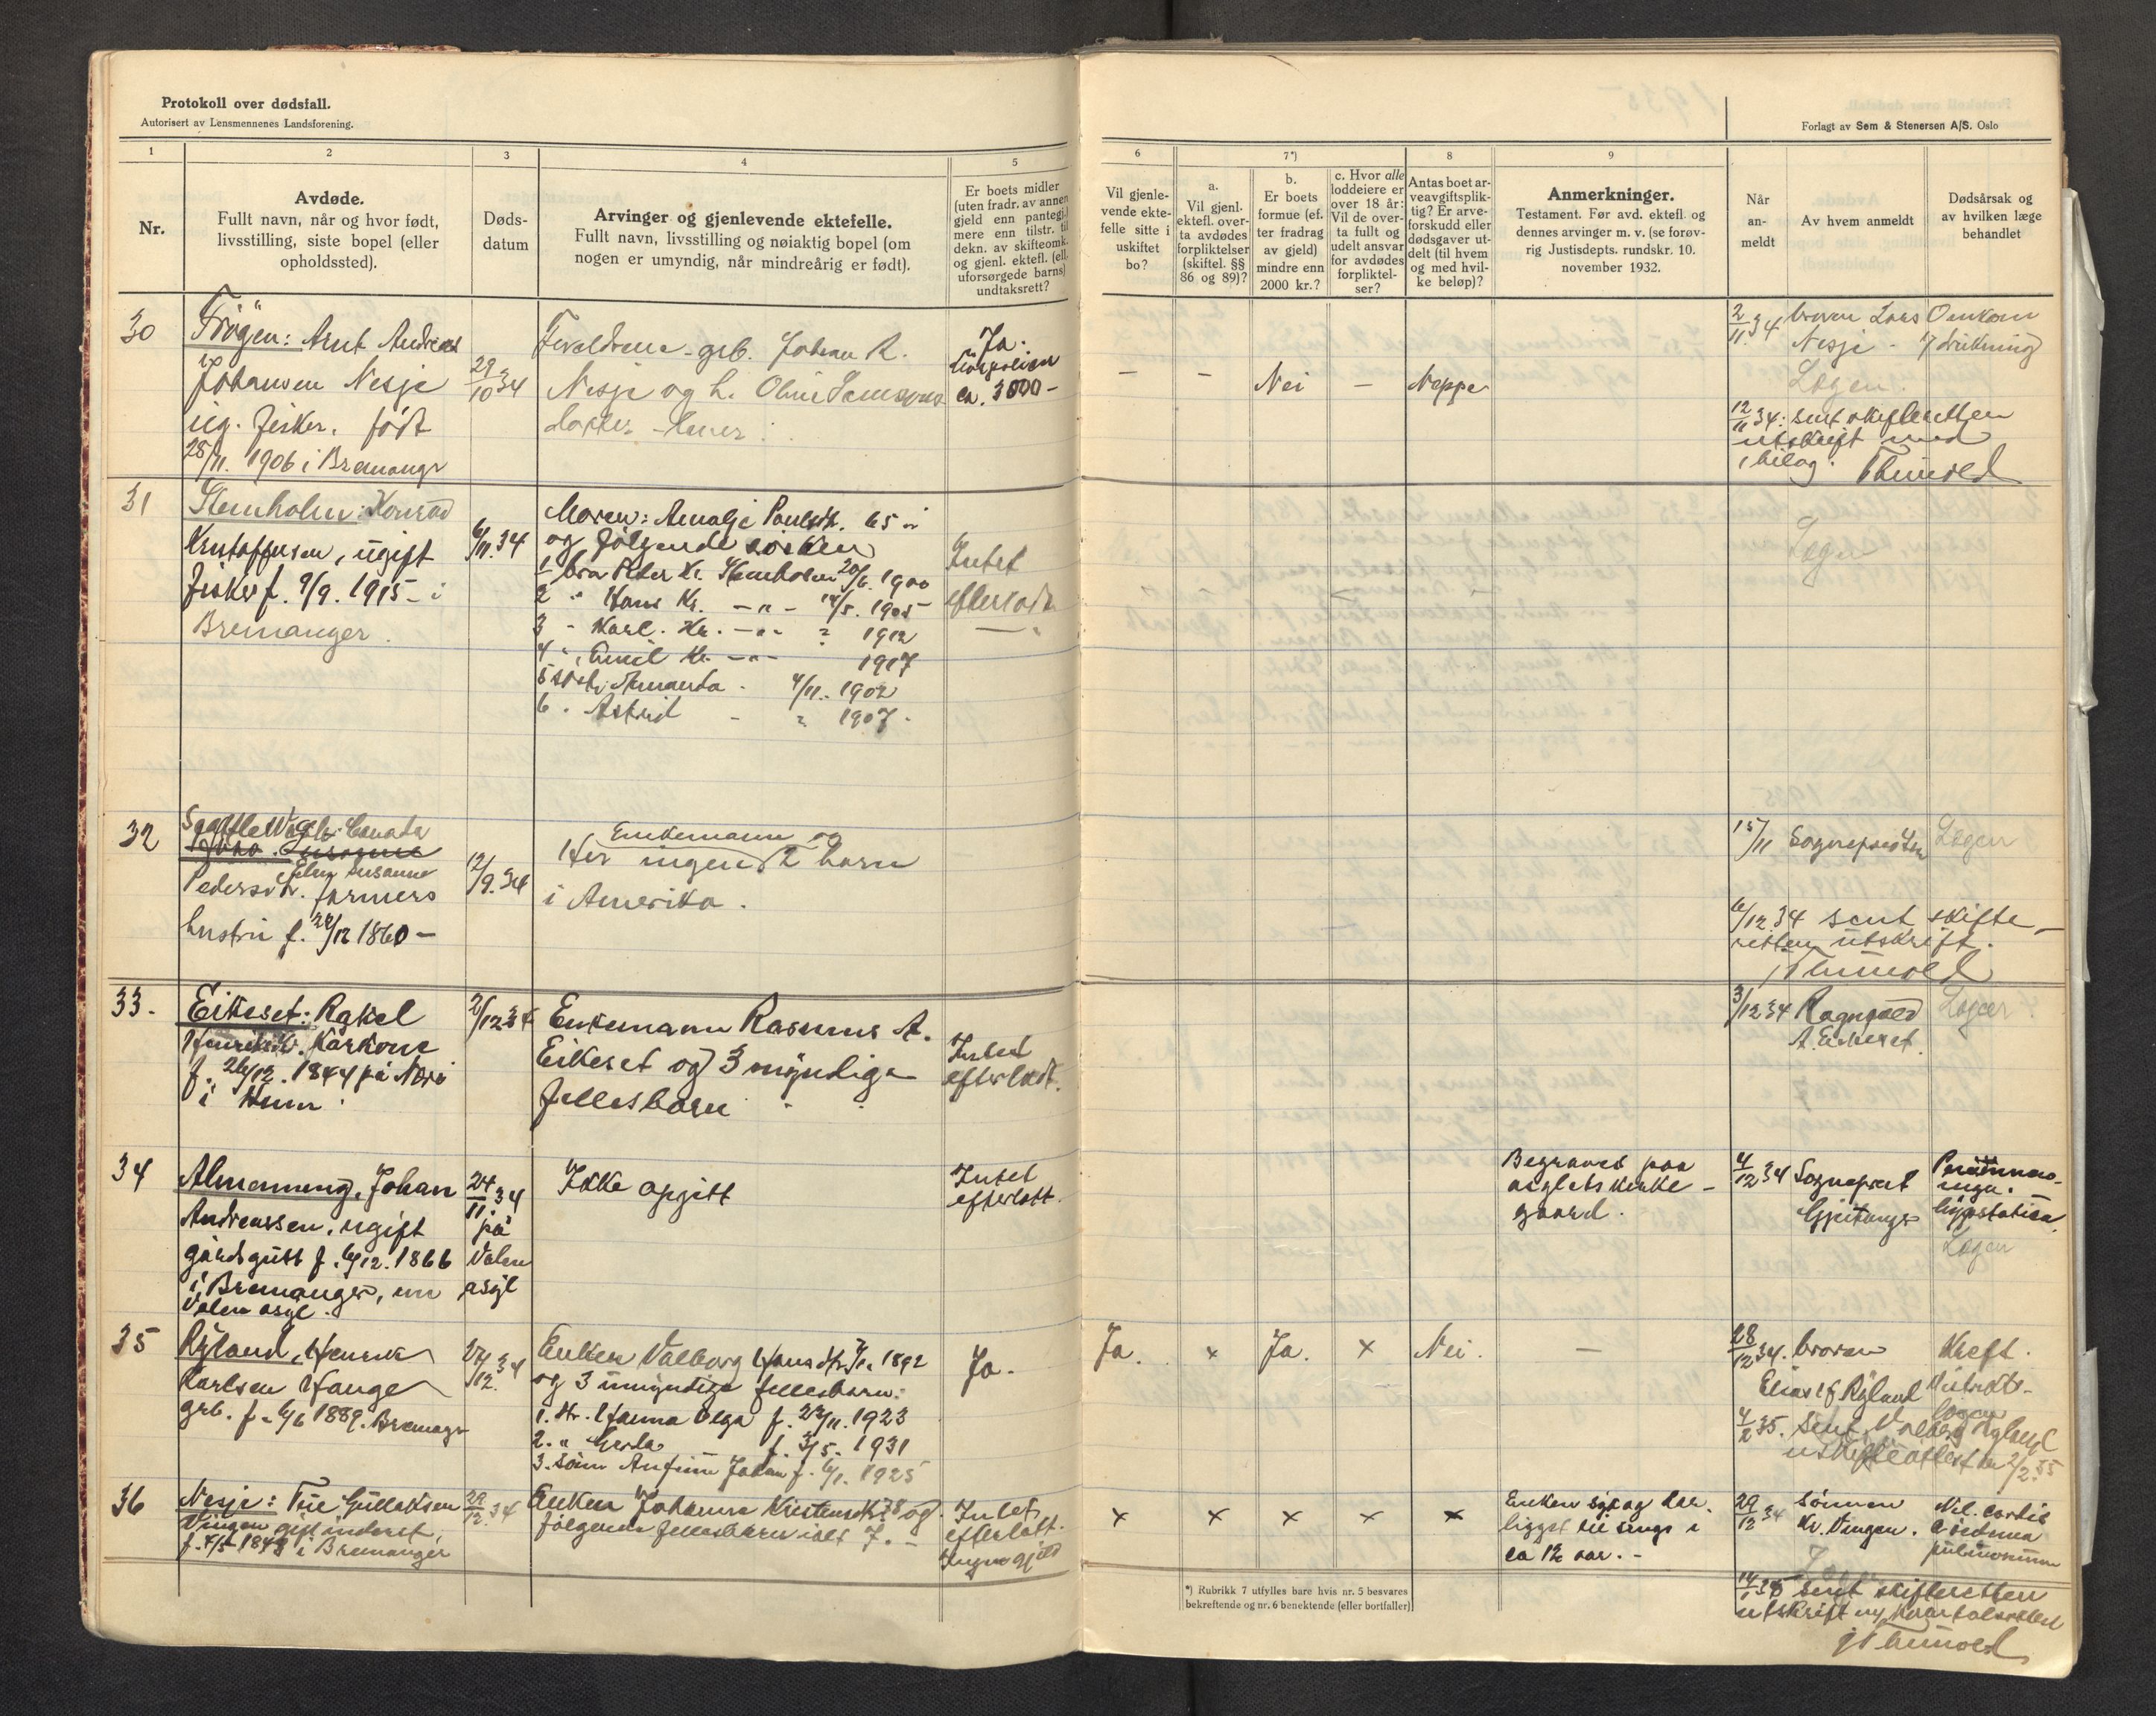 Protokoll over dødsfall.
Autorisert av Lensmennenes Landsforening.
Forlagt av Sem & Stenersen A/S. Oslo
1
2
3
4
5
6
7*)
8
9
Nr.
Avdøde.
Fullt navn, når og hvor født,
livsstilling, siste bopel (eller
opholdssted).
Døds-
datum
Arvinger og gjenlevende ektefelle.
Fullt navn, livsstilling og nøiaktig bopel (om
nogen er umyndig, når mindreårig er født).
Er boets midler
(uten fradr. av annen
gjeld enn pantegj.)
mere enn tilstr. til
dekn. av skifteomk.
og gjenl. ektefl. (ell.
uforsørgede barns)
undtaksrett?
Vil gjenle-
vende ekte-
felle sitte i
uskiftet
bo?
a.
Vil gjenl.
ektefl. over-
ta avdødes
forpliktelser
(skiftel. §§
86 og 89)?
b.
Er boets
formue (ef.
ter fradrag
av gjeld)
mindre enn
2000 kr.?
c. Hvor alle
loddeiere er
over 18 år:
Vil de over-
ta fullt og
udelt ansvar
for avdødes
forpliktel-
ser?
Antas boet ar-
veavgiftsplik-
tig? Er arve-
forskudd eller
dødsgaver ut-
delt (til hvem
og med hvil-
ke beløp)?
Anmerkninger.
Testament. Før avd. ektefl. og
dennes arvinger m. v. (se forøv-
rig Justisdepts. rundskr. 10.
november 1932.
Når
an-
meldt
Av hvem anmeldt
Dødsårsak og
av hvilken læge
behandlet
30
Frögen: Arnt Andreas
Johansen Nesje
ug. fisker. født
28/11. 1906 i Bremanger
29/10 34
Foreldrene - grb. Johan R.
Nesje og h. Oline
Ja.
ca. 3000 -
- - Nei - Neppe
2/11 34 broren Lars
Nesje -
Omkom
v/ drukning
Logen.
12/11 34: sent skifteretten
utskrift med
1 bilag.
31
Stenholm: Konrad
Kristoffersen, ugift
fisker f. 9/9. 1915 - i
Bremanger.
6/11. 34
Moren: Amalje Paulsdtr. 65 år
og følgende søsken
1 bror Peter Kr. Stenholm 20/6. 1900
2 " Hans Kr. - " - 14/5. 1905
3 - Karl. Kr. - " - ? 1912
4 " Emil Kr. - " - 1917
5 søst. Amanda - 4/11. 1902
6 . Astrid - ? 1907.
Intet
efterlatt.
Logen
32
Seattle Wash. Canada
Elen Susanne
Pedersdtr. farmers
hustru f. 28/12 1860 -
12/9. 34
Enkemann og
Her ingen 2 barn
i Amerika.
15/11 Sognepresten
Logen
6/12 34 sent skifte-
retten utskrift.
33.
Eikeset: Rakel
Henriksdtr. Kårkone
f. 26/12. 1844 på Nore
i
2/12 34
Enkemann Rasmus A.
Eikeset og 3 myndige
fellesbarn
Intet
efterladt.
3/12 34 Ragnvald
A. Eikeset.
Logen
34
Almenning, Johan
Andreassen, ugift
gårdsgutt f. 6/12. 1866
i Bremanger, nu
Valen asyl.
24/11 34
på
Valen
asyl
Ikke opgitt
Intet
efterlatt.
Begravet paa
asylets kirke-
gaard.
4/12 34 Sogneprest
hypostatica
Logen
35
Ryland, Henrik
Karlsen Hauge
grb. f. 6/6 1889. Bremanger
24/12. 34
Enken Valborg Hansdtr. f. 1892
og 3 umyndige fellesbarn:
1. dtr. Hanna Olga f. 23/11. 1923
2. " Gerda f. 3/5. 1931
3. sønn Anfinn Johan f. 6/1. 1925
Ja.
Ja. x Ja. x Nei. -
28/12 34. broren
Elias Ryland
Kreft.
Distrikts-
logen
4/2 35. Sent Valborg Ryland
uskifteattest av 2/2. 35
36
Nesje: Tue Gullaksen
Vingen gift inderst,
f. 4/5 1849 i Bremanger
29/12. 34
Enken Johanne Kristensdtr. 78 og
følgende fellesbarn ialt 7. -
Intet
efterlatt.
Ingen gjeld
x x x x x
Enken syk og har
ligget til sengs i
ca 1½ aar. -
29/12 34 sønnen
Kr. Vingen.
Vit. cordis
Oedema
pulmonum
14/1 35 sent skifteretten
utskrift
*) Rubrikk 7 utfylles bare hvis nr. 5 besvares
bekreftende og nr. 6 benektende (eller bortfaller).